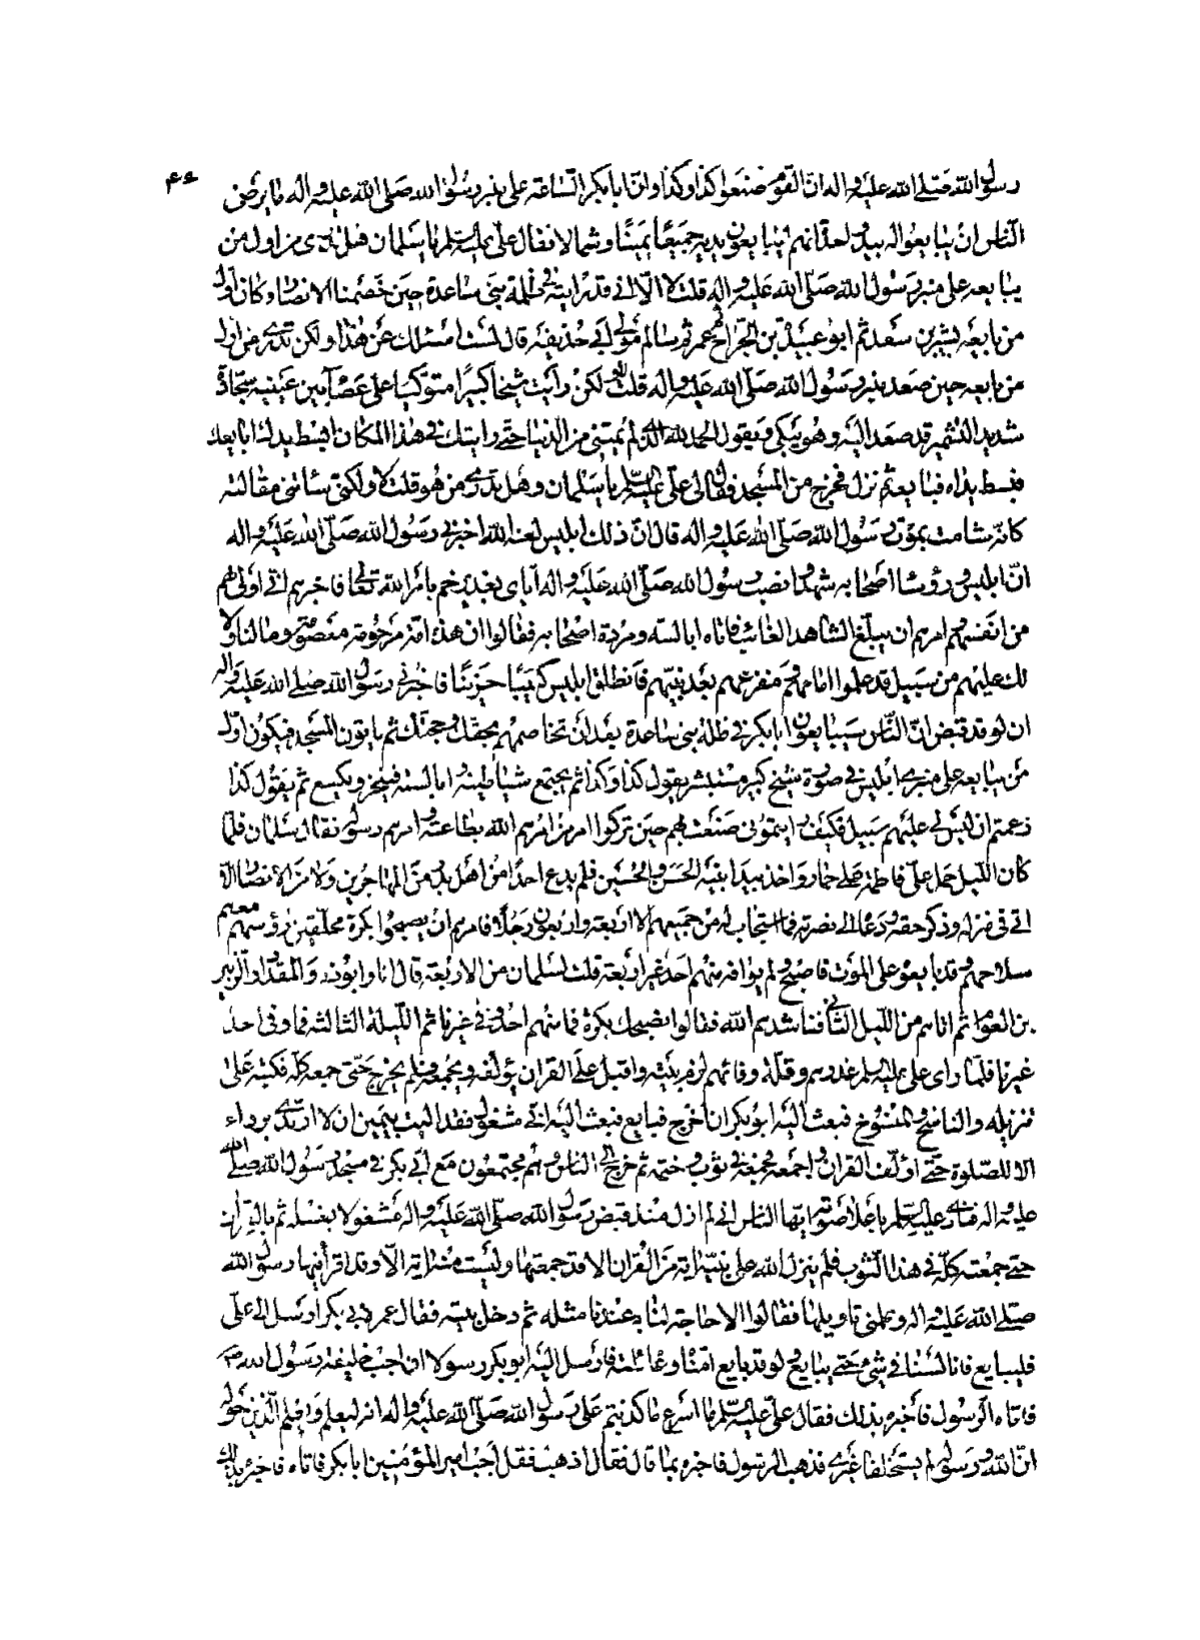 ۴۶
رسول الله صلى الله عليه واله ان القوم صنعوا كذا وكذا وان ابا بكر الساعة على منبر رسول الله صلى الله عليه واله ما يرضى
الناس ان يبايعوا له بيد واحدة انهم ليبايعون بيديه جميعا يمينا وشمالا فقال على عليه السلم يا سلمان فهل تدرى من اول من
يبايعه على منبر رسول الله صلى الله عليه واله قلت لا الا انى قد رايته فى ظلة بنى ساعدة حين خصمنا الانصار وكان اول
من بايعه بشير بن سعد ثم ابو عبيدة بن الجراح ثم عمر ثم سالم مولى ابى حذيفة قال لست اسئلك عن هذا ولكن تدرى من اول
من بايعه حين صعد منبر رسول الله صلى الله عليه واله قلت لا ولكن رايت شيخا كبيرا متوكيا على عصا بين عينيه سجادة
شديد التشمير قد صعد اليه وهو يبكى ويقول الحمد لله الذى لم يمتنى من الدنيا حتى رايتك فى هذا المكان ابسط يدك ابايعك
فبسط يداه فبايعه ثم نزل فخرج من المسجد فقال لى على عليه السلم يا سلمان وهل تدرى من هو قلت لا ولكنى سائتنى مقالته
كانه شامت بموت رسول الله صلى الله عليه واله قال ان ذلك ابليس لعنه الله اخبرنى رسول الله صلى الله عليه واله
ان ابليس ورؤسا اصحابه شهدوا نصب رسول الله صلى الله عليه واله اياى بغدير خم بامر الله تعالى فاخبرهم انى اولى بهم
من انفسهم وامرهم ان يبلغ الشاهد الغائب فاتاه ابالسته ومردة اصحابه فقالوا ان هذه امة مرحومة معصومة وما لنا ولا
لك عليهم من سبيل قد علموا امامهم ومفزعهم بعد نبيهم فانطلق ابليس كئيبا حزينا فاخبرنى رسول الله صلى الله عليه واله
ان لو قد قبض ان الناس سيبايعون ابا بكر فى ظلة بنى ساعدة بعد ان تخاصمهم بحقك وحجتك ثم ياتون المسجد فيكون اول
من يبايعه على منبرى ابليس فى صورة شيخ كبير مستبشر يقول كذا وكذا ثم يجتمع شياطينه وابالسته فينخر ويكسع ثم يقول كذا
زعمتم ان ليس لى عليهم سبيل فكيف رايتمونى صنعت بهم حين تركوا امر من امرهم الله بطاعته وامرهم رسوله فقال سلمان فلما
كان الليل حمل على فاطمة على حمار واخذ بيد ابنيه الحسن والحسين فلم يدع احدا من اهل بدر من المهاجرين ولا من الانصار الا
اتى فى منزله وذكر حقه ودعا الى نصرته فما استجاب له من جميعهم الا اربعة واربعون رجلا فامرهم ان يصبحوا بكرة محلقين رؤسهم معهم
سلاحهم وقد بايعوه على الموت فاصبح ولم يوافه منهم احد غير اربعة قلت لسلمان من الاربعة قال انا وابو ذر والمقداد والزبير
بن العوام ثم اتاهم من الليل الثانى فناشدهم الله فقالوا نصبحك بكرة فما منهم احد وفى غيرنا ثم الليلة الثالثة فما وفى احد
غيرنا فلما راى على عليه السلم غدرهم وقلة وفائهم لزم بيته واقبل على القران يؤلفه ويجمعه فلم يخرج حتى جمعه كله فكتبه على
تنزيله والناسخ والمنسوخ فبعث اليه ابو بكر ان اخرج فبايع فبعث اليه انى مشغول فقد اليت بيمين ان لا ارتدى برداء
الا للصلوة حتى اؤلف القران واجمعه فجمعه فى ثوب وختمه ثم خرج الى الناس وهم مجتمعون مع ابى بكر فى مسجد رسول الله صلى الله
عليه واله فنادى عليه السلم باعلا صوته ايها الناس انى لم ازل منذ قبض رسول الله صلى الله عليه واله مشغولا بغسله ثم بالقران
حتى جمعته كله فى هذا الثوب فلم ينزل الله على نبيه اية من القران الا قد جمعتها وليست منه اية الا وقد اقرأنيها رسول الله
صلى الله عليه واله وعلمنى تاويلها فقالوا لا حاجة لنا به عندنا مثله ثم دخل بيته فقال عمر لابى بكر ارسل الى على
فليبايع فانا لسنا فى شىء حتى يبايع ولو قد بايع امنا وغائلته فارسل اليه ابو بكر رسولا ان اجب خليفة رسول الله ص
فاتاه الرسول فاخبره بذلك فقال على عليه السلم ما اسرع ما كذبتم على رسول الله صلى الله عليه واله انه ليعلم ويعلم الذين حوله
ان الله ورسوله لم يستخلفا غيرى فذهب الرسول فاخبره بما قال فقال اذهب فقل اجب امير المؤمنين ابا بكر فاتاه فاخبره بذلك